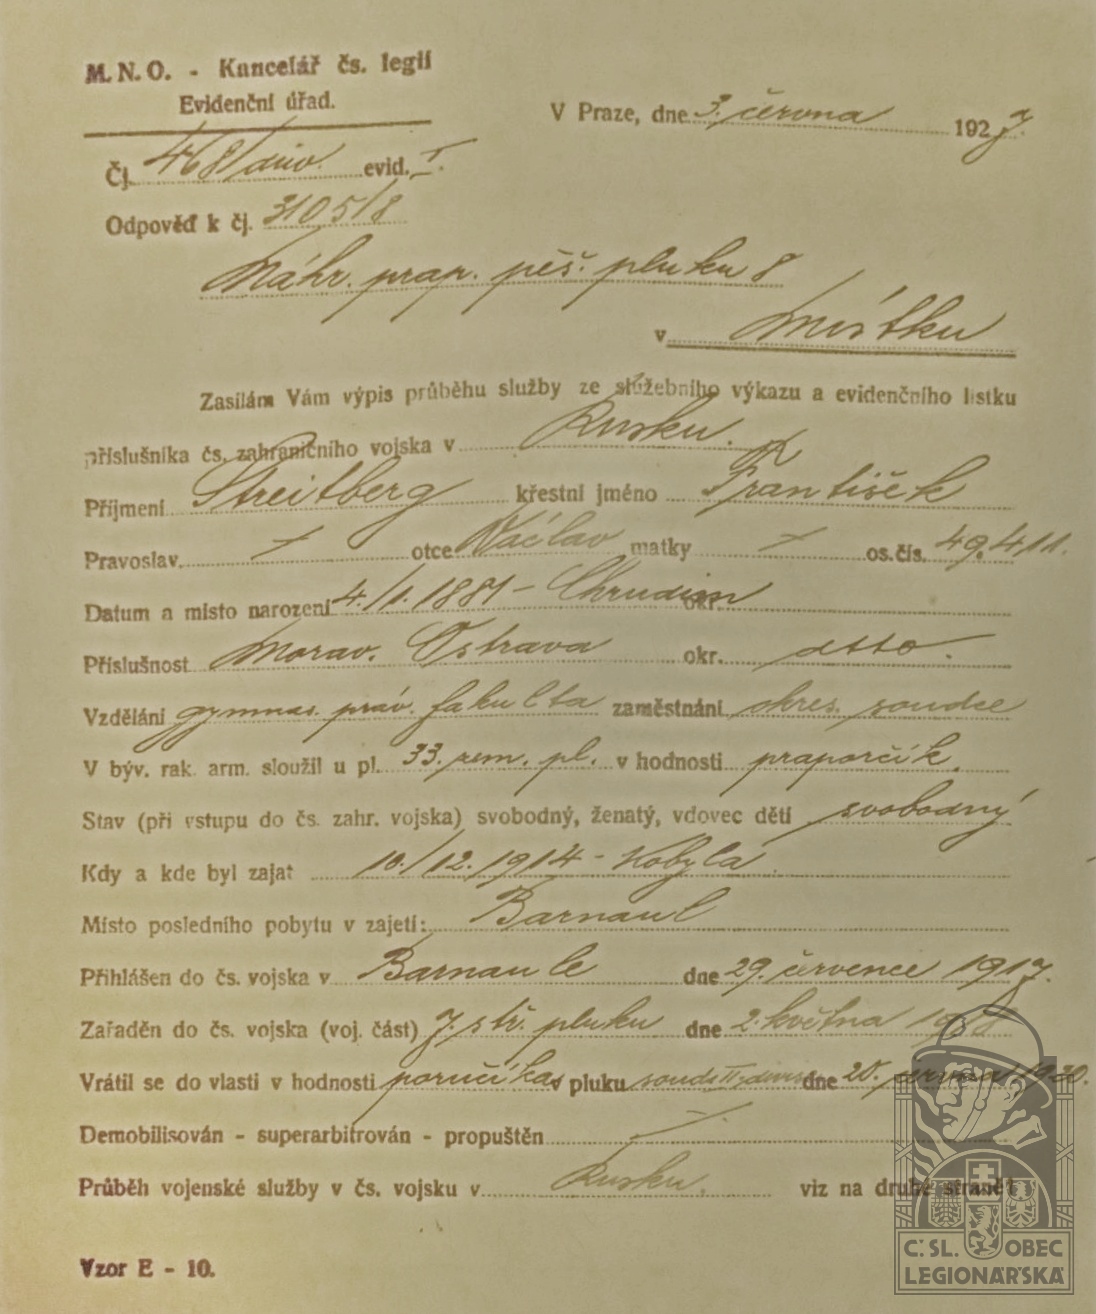 M. N. O. - Kancelář čs. legií
Evidenční úřad.
V Praze, dne 3. června 1927.
Čj. 468/dův. evid. I.
Odpověď k čj. 3105/8
Náhr. prap. pěš. pluku 8
v Místku
Zasílám Vám výpis průběhu služby ze služebního výkazu a evidenčního lístku
příslušníka čs. zahraničního vojska v Rusku.
Příjmení Streitberg křestní jméno František
Pravoslav. otce Václav matky os. čís. 49.411.
Datum a místo narození 4./1. 1881 - Chrudim okr.
Příslušnost Morav. Ostrava okr. dtto.
Vzdělání gymnas. práv. fakulta zaměstnání okres. soudce
V býv. rak. arm. sloužil u pl. 33. zem. pl. v hodnosti praporčík.
Stav (při vstupu do čs. zahr. vojska) svobodný, ženatý, vdovec dětí svobodný
Kdy a kde byl zajat 10./12. 1914 - Kobyla
Místo posledního pobytu v zajetí: Barnaul
Přihlášen do čs. vojska v Barnaule dne 29. července 1917.
Zařaděn do čs. vojska (voj. část) 7. stř. pluku dne 2. května 1918
Vrátil se do vlasti v hodnosti poručíka v pluku soudu II. divise dne 20. 1920.
Demobilisován - superarbitrován - propuštěn
Průběh vojenské služby v čs. vojsku v Rusku. viz na druhé straně!
Vzor E - 10.
Č. SL. OBEC
LEGIONÁŘSKÁ